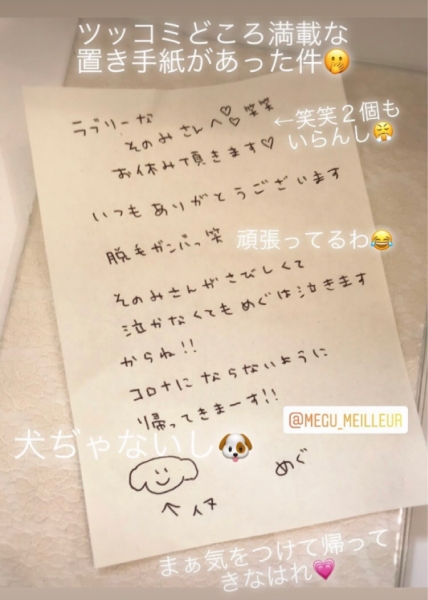 ツッコミどころ満載な
置き手紙があった件🤭
ラブリーな
そのみさんへ♡♡笑笑
←笑笑２個も
いらんし😤
お休み頂きます♡
いつもありがとうございます
脱毛ガンバっ笑
頑張ってるわ😂
そのみさんがさびしくて
泣かなくてもめぐは泣きます
からね!!
コロナにならないように
帰ってきまーす!!
@MEGU_MEILLEUR
犬ぢゃないし🐶
めぐ
↑イヌ
まぁ気をつけて帰って
きなはれ💗